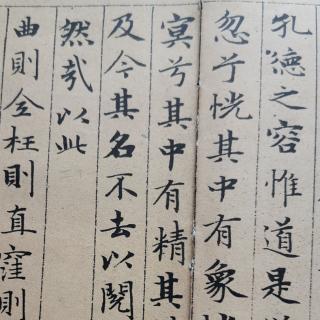 孔德之容惟道是
忽兮恍其中有象
冥兮其中有精其
及今其名不去以閱
然哉以此
曲則全枉則直窪則